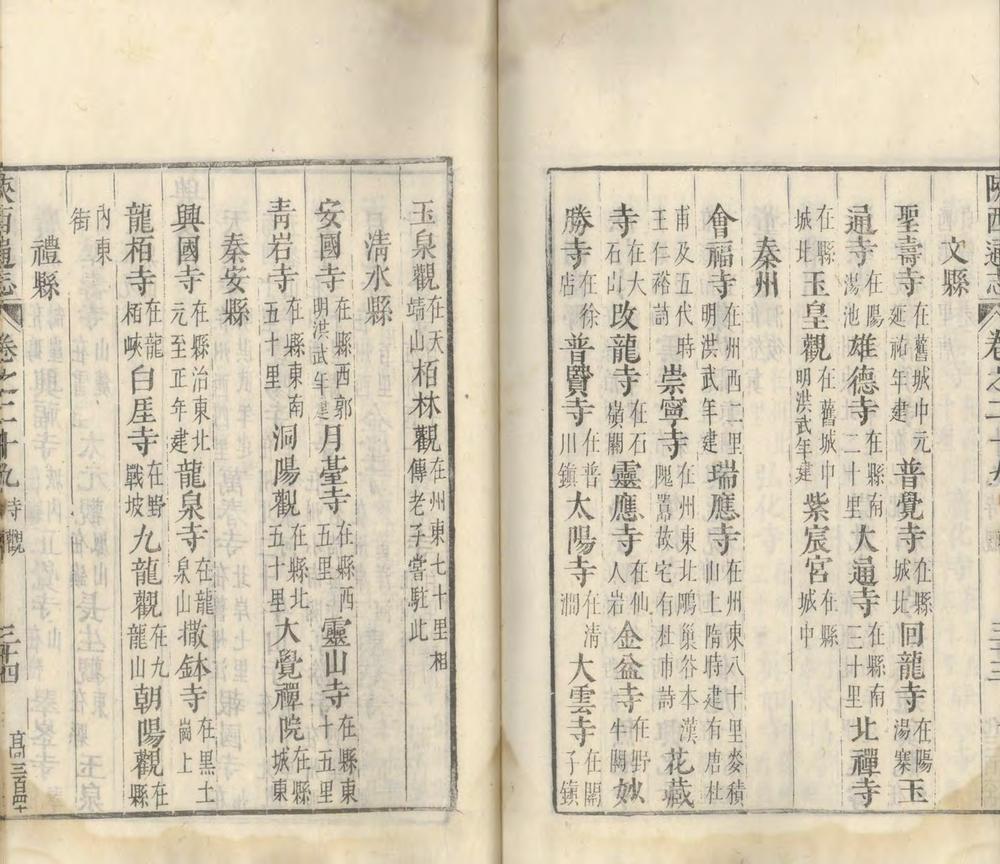 陝西通志 卷之二十九 寺觀 三十三
文縣
聖壽寺在舊城中元延祐年建 普覺寺在縣城北 回龍寺在陽湯寨 玉
通寺在陽湯池 雄德寺在縣南二十里 大通寺在縣南三十里 北禪寺
在縣城北 玉皇觀在舊城中明洪武年建 紫宸宮在縣城中
秦州
會福寺在州西二里明洪武年建 瑞應寺在州東八十里麥積山上隋時建有唐杜
甫及五代時王仁裕詩 崇寧寺在州東北鵰巢谷本漢隗囂故宅有杜甫詩 花藏
寺在大石山 改龍寺在石嶺關 靈應寺在仙人岩 金益寺在野牛關 妙
勝寺在徐店 普賢寺在普川鎮 太陽寺在清澗 大雲寺在關子鎮
玉泉觀在天靖山 栢林觀在州東七十里相傳老子嘗駐此
清水縣
安國寺在縣西郭明洪武年建 月臺寺在縣西五里 靈山寺在縣東十五里
青岩寺在縣東南五十里 洞陽觀在縣北五十里 大覺禪院在縣城東
秦安縣
興國寺在縣治東北元至正年建 龍泉寺在龍泉山 撒鉢寺在黑土崗上
龍栢寺在龍栢峽 白厓寺在野戰坡 九龍觀在九龍山 朝陽觀在縣
內東街
禮縣
陝西通志 卷之二十九 寺觀 三十四 高三百四十